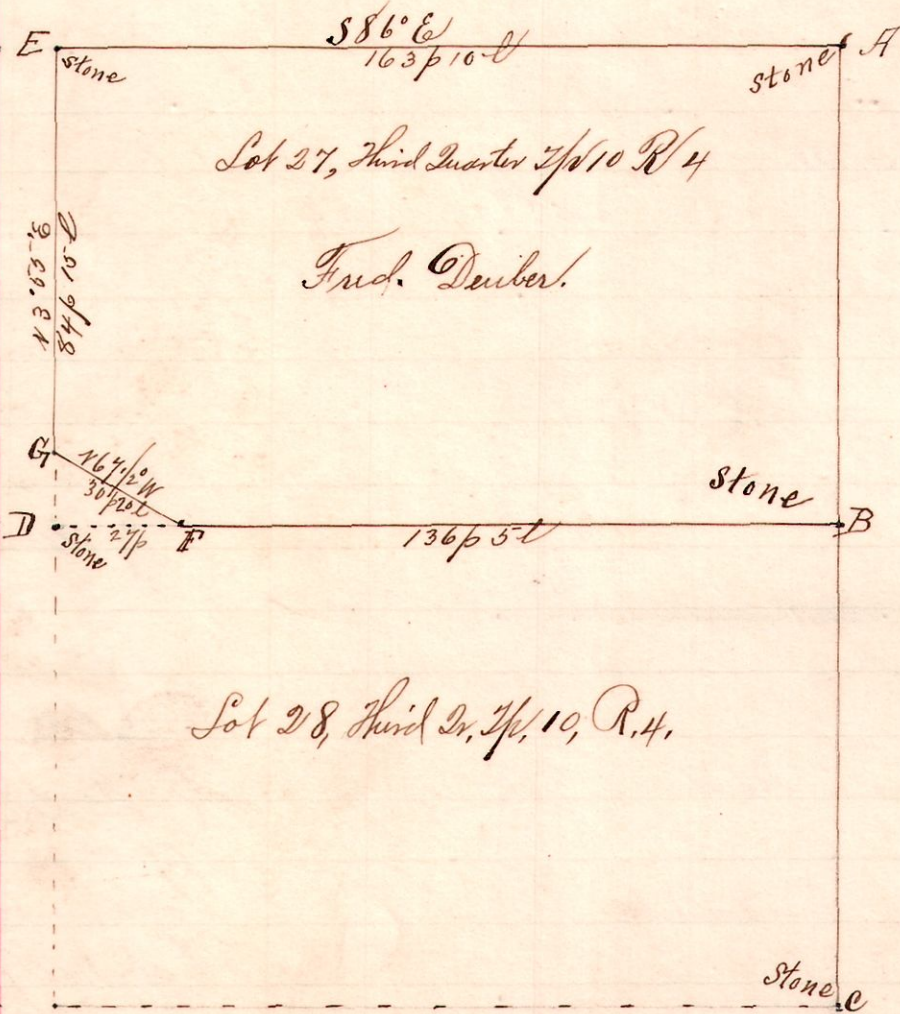 S 86° E
E
163p 10l
A
stone
stone
Lot 27, Third Quarter Tp 10 R 4
Fred. Deuber.
N 3°. 55' E
84p 15l
G
N 67 1/2° W
30p 20l
stone
D
27p
F
136p 5l
B
stone
Lot 28, Third Qr, Tp, 10, R. 4.
stone
C